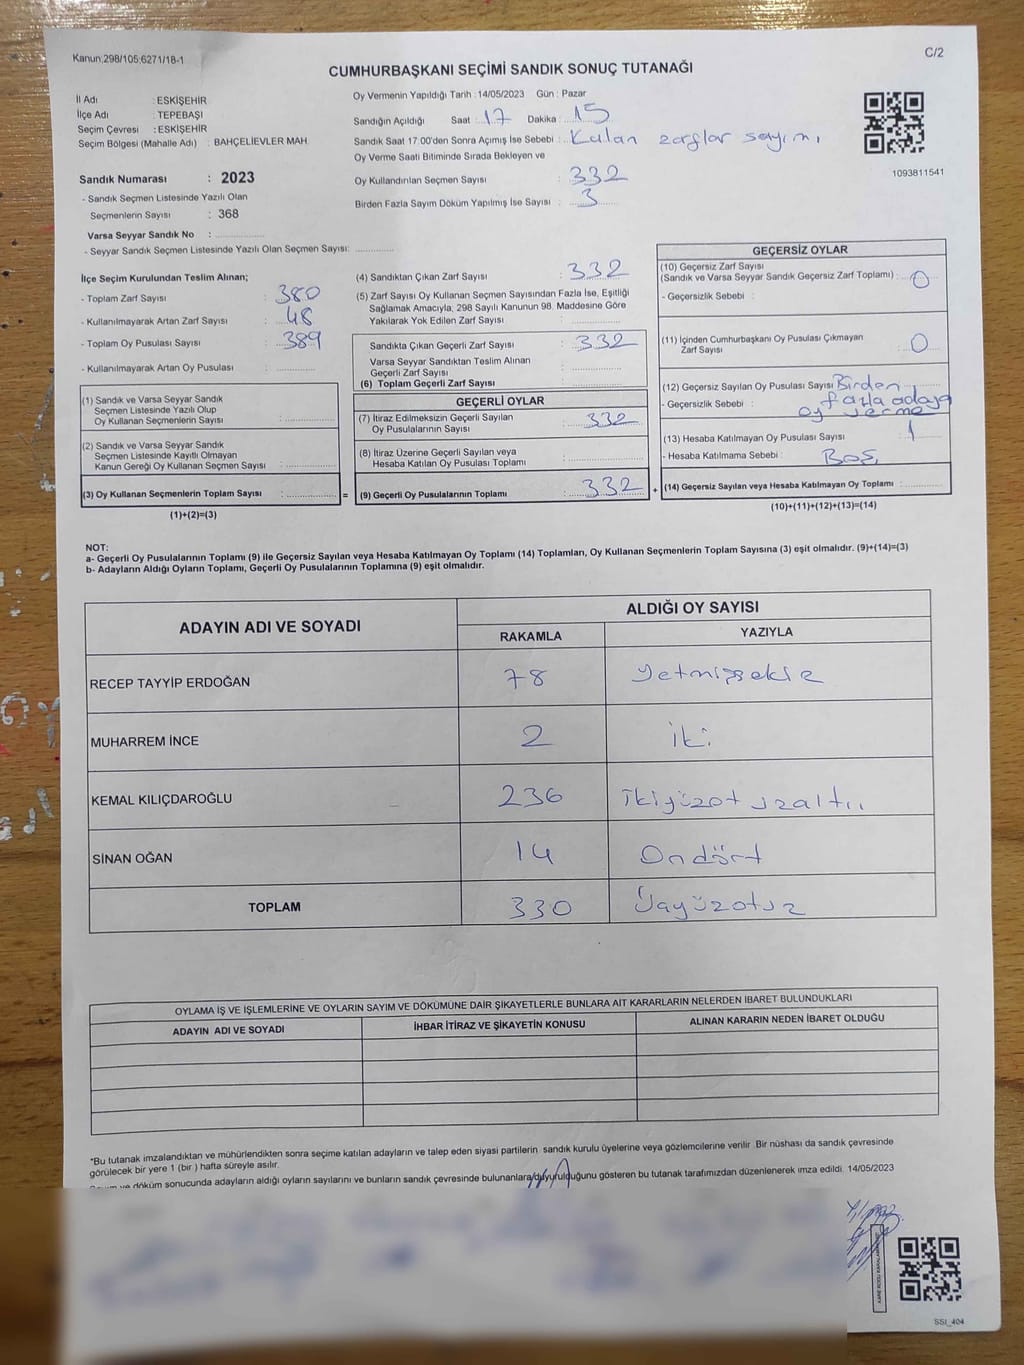 Kanun:298/105;6271/18-1
C/2
CUMHURBAŞKANI SEÇİMİ SANDIK SONUÇ TUTANAĞI
İl Adı : ESKİŞEHİR
İlçe Adı : TEPEBAŞI
Seçim Çevresi : ESKİŞEHİR
Seçim Bölgesi (Mahalle Adı) : BAHÇELİEVLER MAH.
Sandık Numarası : 2023
- Sandık Seçmen Listesinde Yazılı Olan
Seçmenlerin Sayısı : 368
Varsa Seyyar Sandık No :
- Seyyar Sandık Seçmen Listesinde Yazılı Olan Seçmen Sayısı:
Oy Vermenin Yapıldığı Tarih : 14/05/2023 Gün : Pazar
Sandığın Açıldığı Saat : 17 Dakika : 15
Sandık Saat 17:00'den Sonra Açımış İse Sebebi : Kalan zarflar sayımı
Oy Verme Saati Bitiminde Sırada Bekleyen ve
Oy Kullandırılan Seçmen Sayısı : 332
Birden Fazla Sayım Döküm Yapılmış İse Sayısı : 3
1093811541
İlçe Seçim Kurulundan Teslim Alınan;
- Toplam Zarf Sayısı : 380
- Kullanılmayarak Artan Zarf Sayısı : 48
- Toplam Oy Pusulası Sayısı : 389
- Kullanılmayarak Artan Oy Pusulası :
(1) Sandık ve Varsa Seyyar Sandık
Seçmen Listesinde Yazılı Olup
Oy Kullanan Seçmenlerin Sayısı :
(2) Sandık ve Varsa Seyyar Sandık
Seçmen Listesinde Kayıtlı Olmayan
Kanun Gereği Oy Kullanan Seçmen Sayısı :
(3) Oy Kullanan Seçmenlerin Toplam Sayısı : =
(1)+(2)=(3)
(4) Sandıktan Çıkan Zarf Sayısı : 332
(5) Zarf Sayısı Oy Kullanan Seçmen Sayısından Fazla İse, Eşitliği
Sağlamak Amacıyla, 298 Sayılı Kanunun 98. Maddesine Göre
Yakılarak Yok Edilen Zarf Sayısı :
Sandıkta Çıkan Geçerli Zarf Sayısı : 332
Varsa Seyyar Sandıktan Teslim Alınan
Geçerli Zarf Sayısı :
(6) Toplam Geçerli Zarf Sayısı :
GEÇERLİ OYLAR
(7) İtiraz Edilmeksizin Geçerli Sayılan
Oy Pusulalarının Sayısı : 332
(8) İtiraz Üzerine Geçerli Sayılan veya
Hesaba Katılan Oy Pusulası Toplamı :
(9) Geçerli Oy Pusulalarının Toplamı : 332 +
GEÇERSİZ OYLAR
(10) Geçersiz Zarf Sayısı
(Sandık ve Varsa Seyyar Sandık Geçersiz Zarf Toplamı) : 0
- Geçersizlik Sebebi :
(11) İçinden Cumhurbaşkanı Oy Pusulası Çıkmayan
Zarf Sayısı : 0
(12) Geçersiz Sayılan Oy Pusulası Sayısı Birden 1
- Geçersizlik Sebebi : fazla adaya
oy verme
(13) Hesaba Katılmayan Oy Pusulası Sayısı : 1
- Hesaba Katılmama Sebebi : Boş
(14) Geçersiz Sayılan veya Hesaba Katılmayan Oy Toplamı :
(10)+(11)+(12)+(13)=(14)
NOT:
a- Geçerli Oy Pusulalarının Toplamı (9) ile Geçersiz Sayılan veya Hesaba Katılmayan Oy Toplamı (14) Toplamları, Oy Kullanan Seçmenlerin Toplam Sayısına (3) eşit olmalıdır. (9)+(14)=(3)
b- Adayların Aldığı Oyların Toplamı, Geçerli Oy Pusulalarının Toplamına (9) eşit olmalıdır.
ADAYIN ADI VE SOYADI
ALDIĞI OY SAYISI
RAKAMLA YAZIYLA
RECEP TAYYİP ERDOĞAN 78 Yetmişsekiz
MUHARREM İNCE 2 iki
KEMAL KILIÇDAROĞLU 236 ikiyüzotuzaltı
SİNAN OĞAN 14 Ondört
TOPLAM 330 Üçyüzotuz
OYLAMA İŞ VE İŞLEMLERİNE VE OYLARIN SAYIM VE DÖKÜMÜNE DAİR ŞİKAYETLERLE BUNLARA AİT KARARLARIN NELERDEN İBARET BULUNDUKLARI
ADAYIN ADI VE SOYADI İHBAR İTİRAZ VE ŞİKAYETİN KONUSU ALINAN KARARIN NEDEN İBARET OLDUĞU
*Bu tutanak imzalandıktan ve mühürlendikten sonra seçime katılan adayların ve talep eden siyasi partilerin sandık kurulu üyelerine veya gözlemcilerine verilir. Bir nüshası da sandık çevresinde
görülecek bir yere 1 (bir) hafta süreyle asılır.
ve döküm sonucunda adayların aldığı oyların sayılarını ve bunların sandık çevresinde bulunanlara duyurulduğunu gösteren bu tutanak tarafımızdan düzenlenerek imza edildi. 14/05/2023
SSI_404